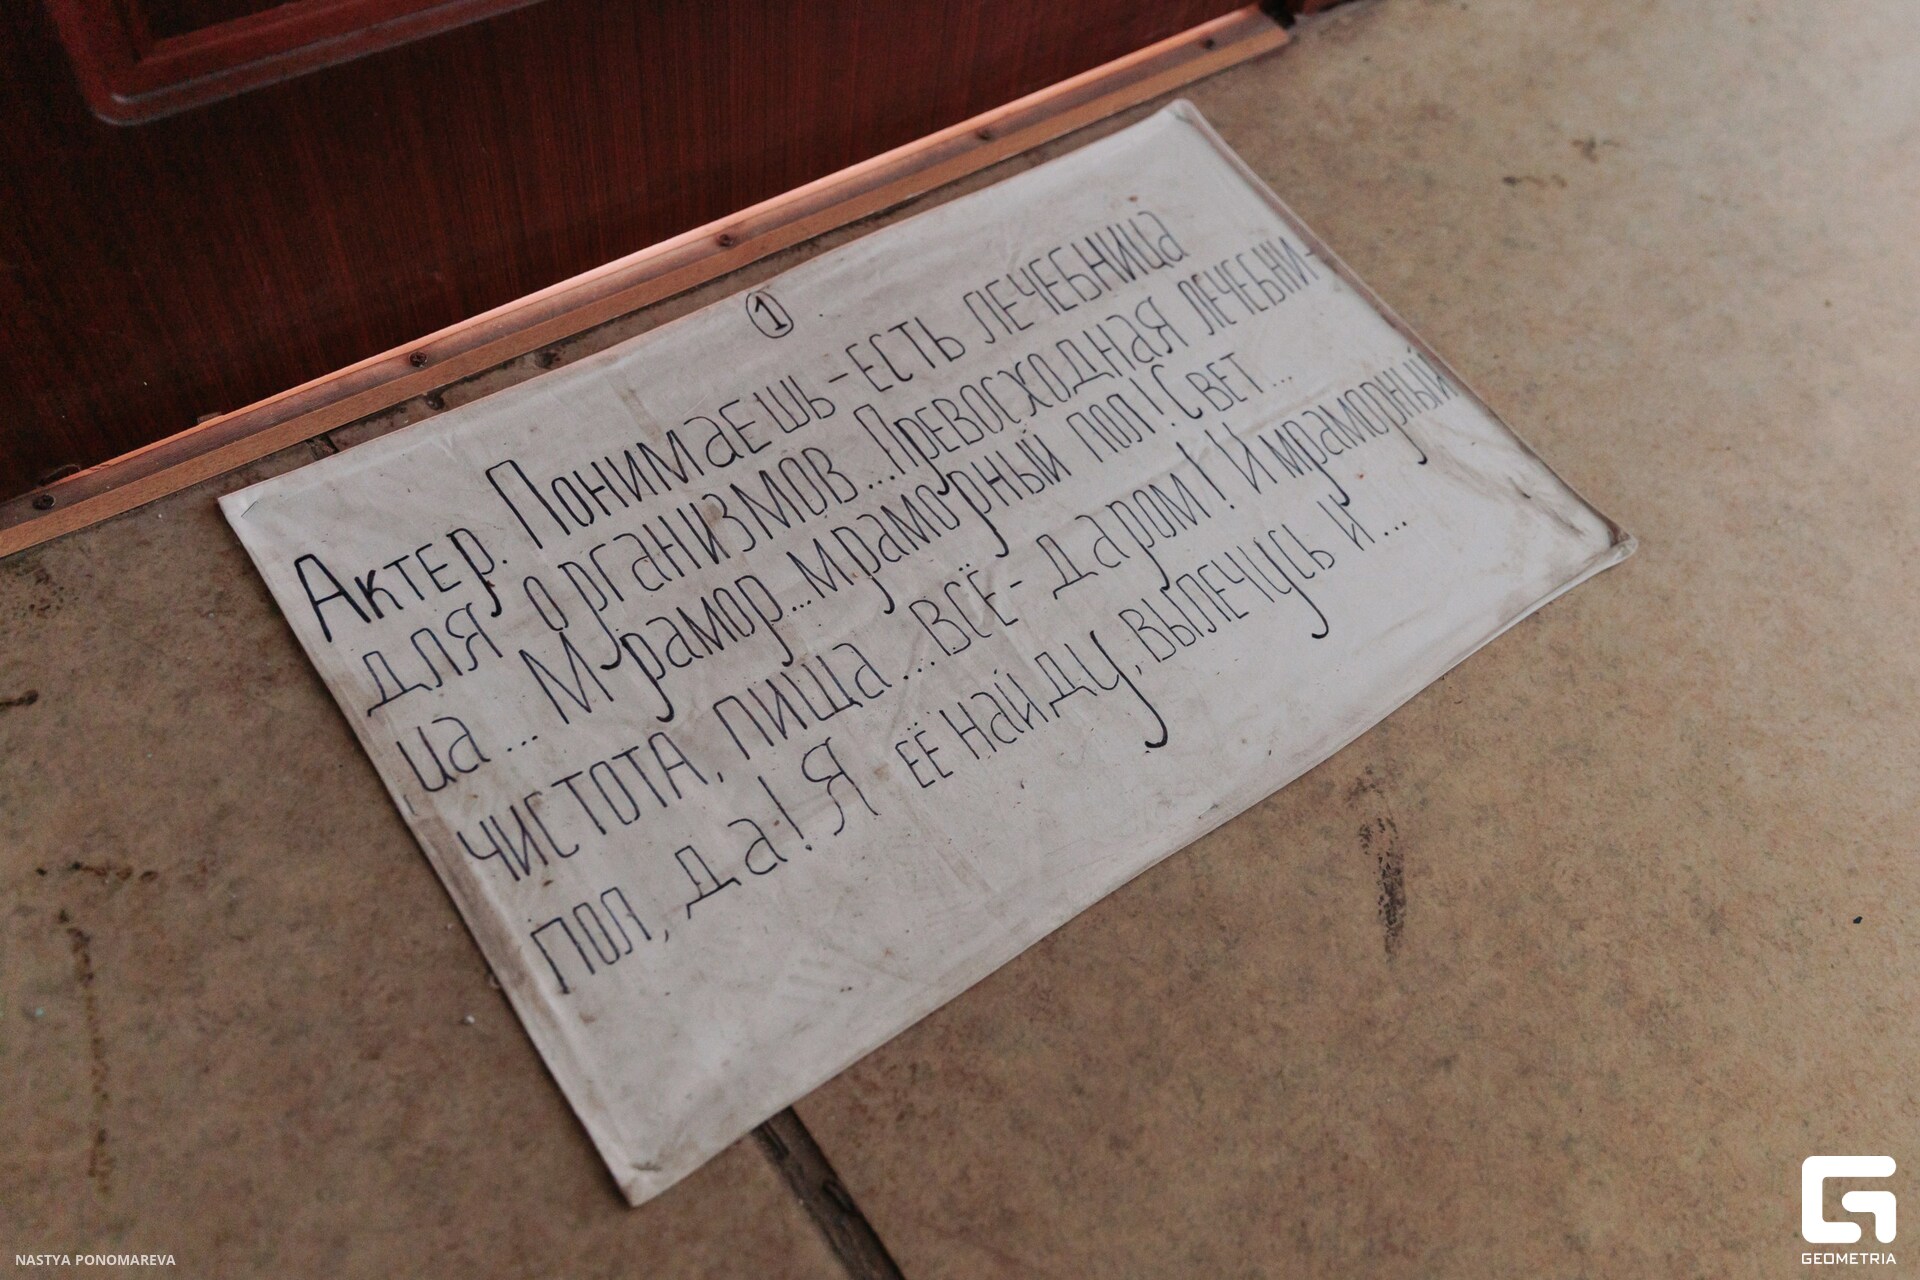 1
Актер. Понимаешь – есть лечебница
для организмов... Превосходная лечебни-
ца... Мрамор... мраморный пол! Свет...
чистота, пища... всё – даром! И мраморный
пол, да! Я её найду, вылечусь и...
NASTYA PONOMAREVA
GEOMETRIA